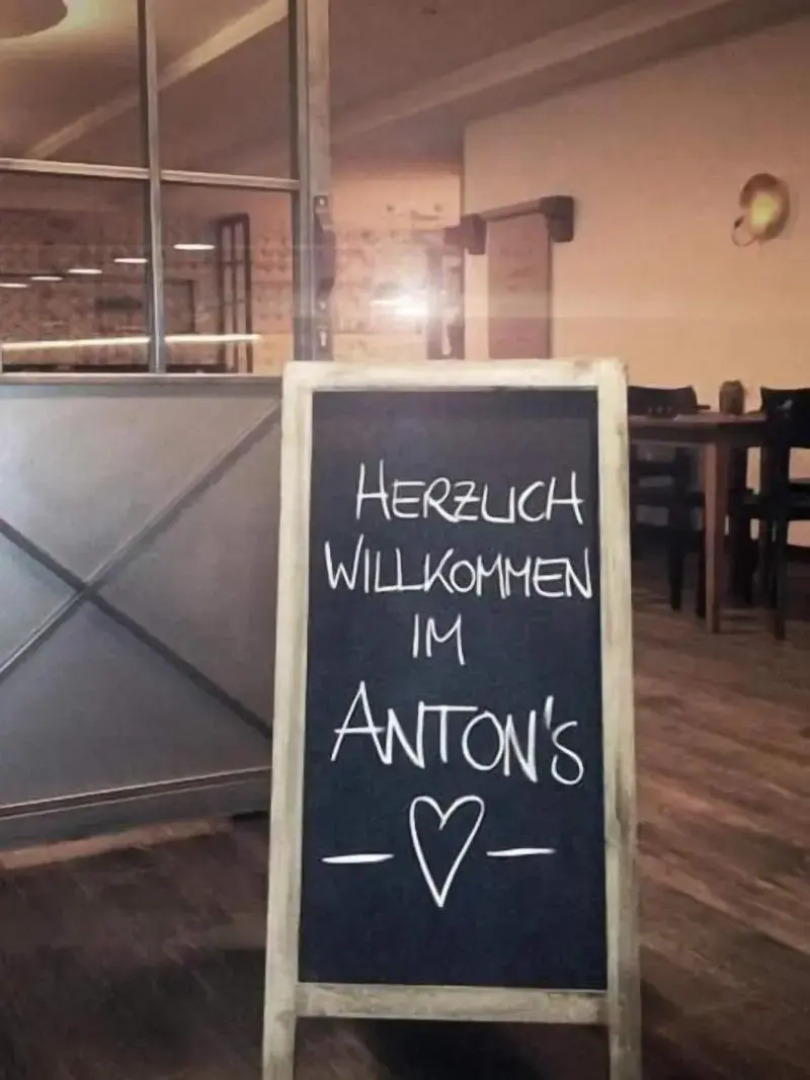 HERZLICH
WILLKOMMEN
IM
ANTON'S